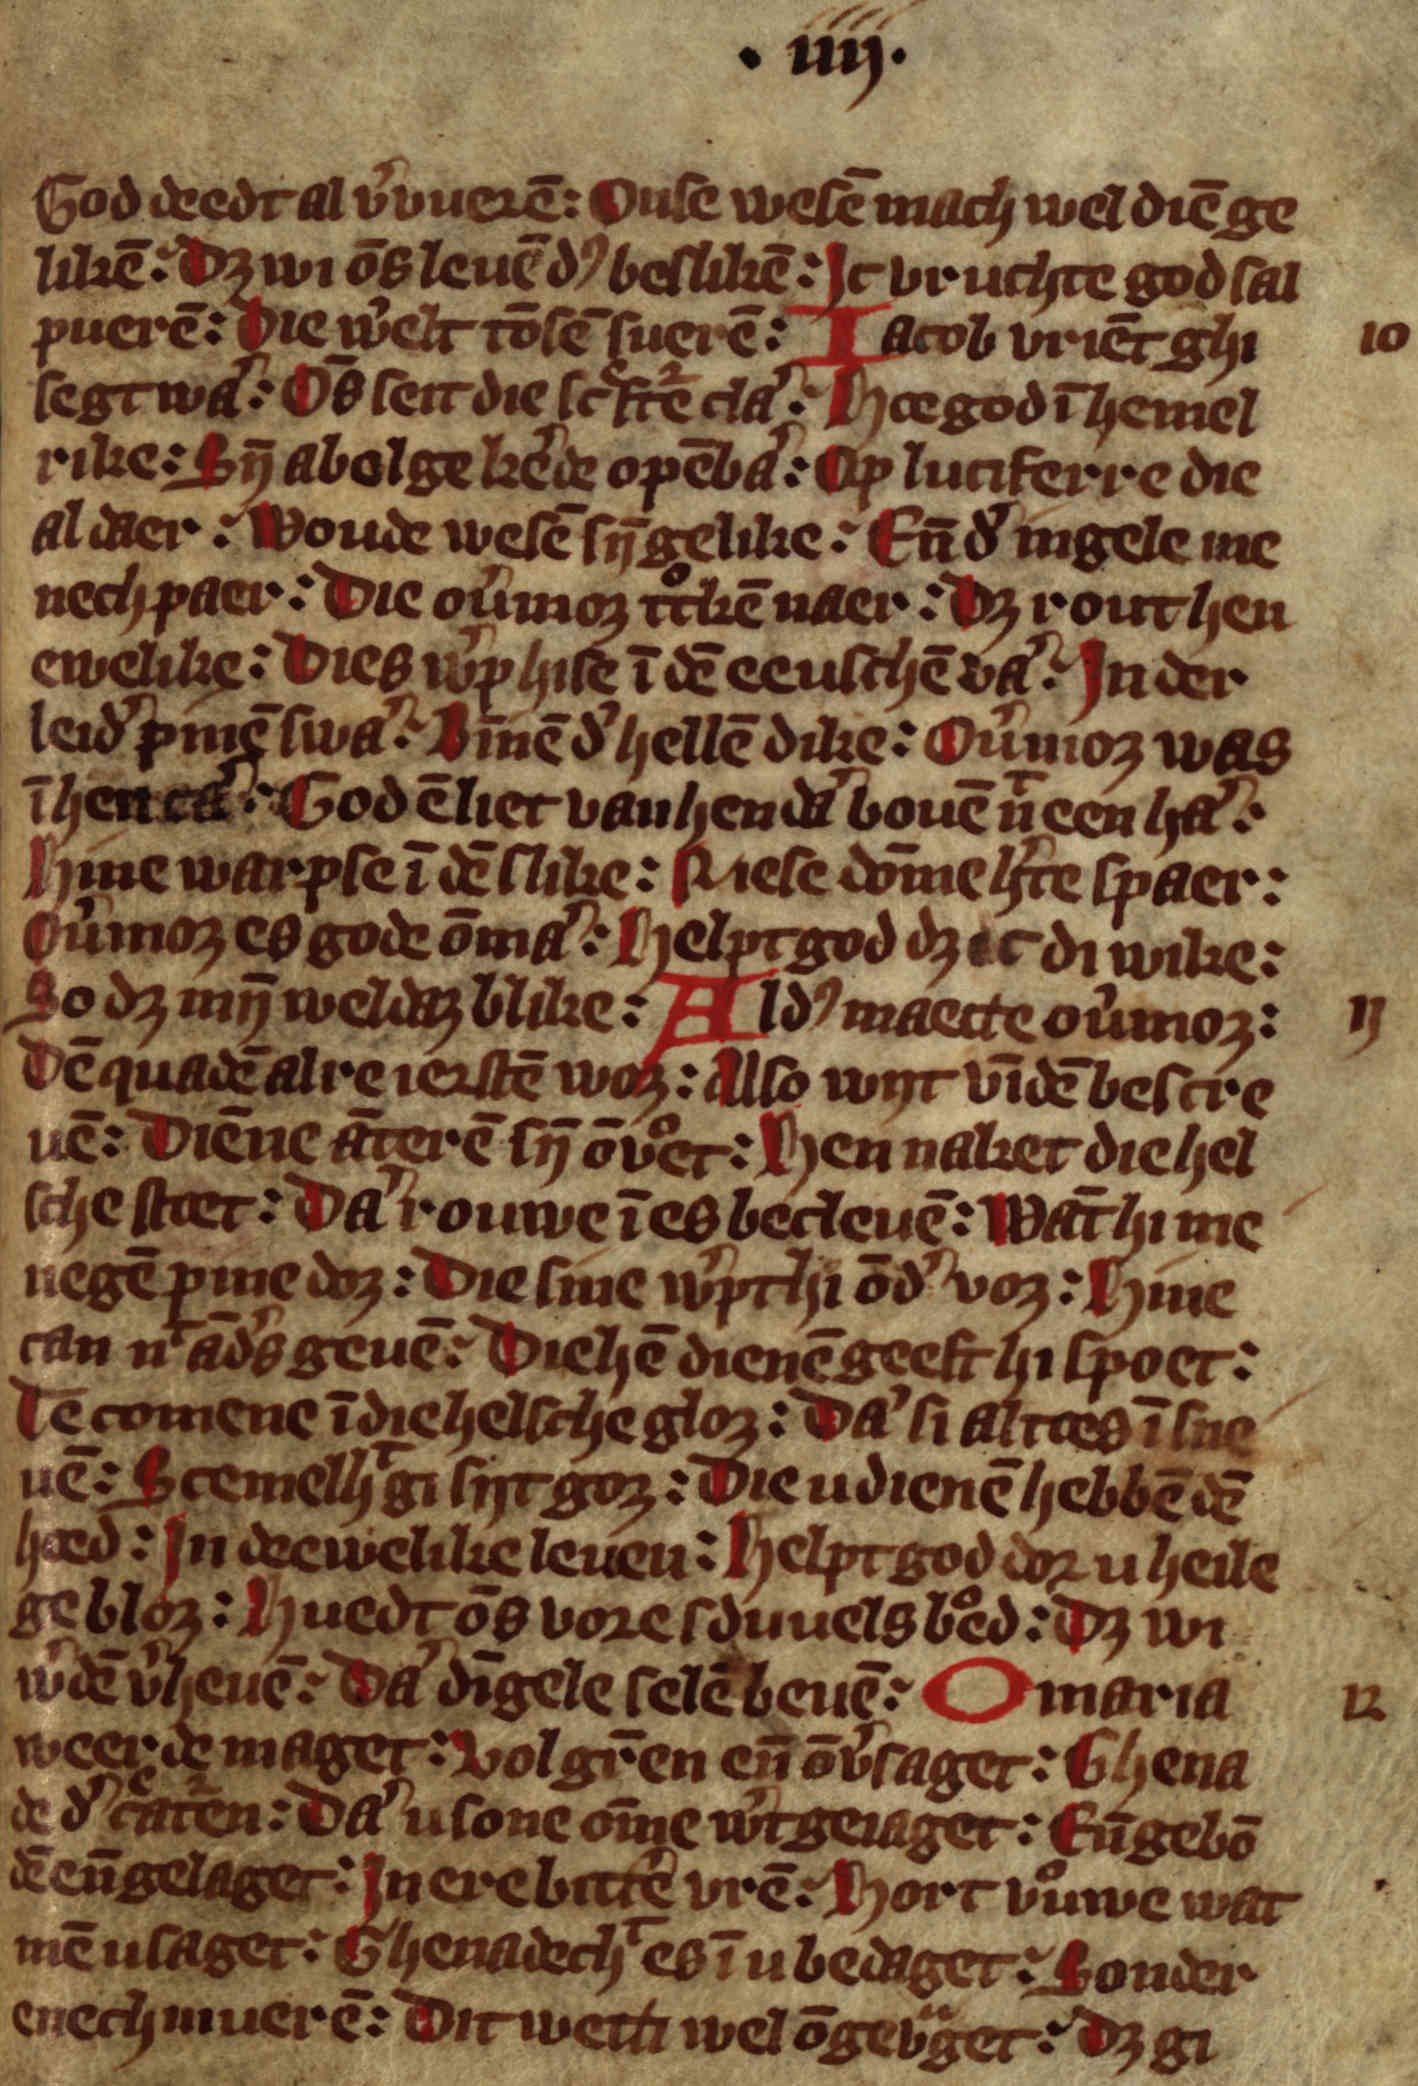 · iiij ·
God deedt al v᷑vuerē : Onse wesē mach wel diē ge
likē : Dꝫ wi ōs leuē dꝰ beslikē : Jc vruchte god sal
puerē : Die w᷑elt tōsē suerē : Iacob vriēt ghi
10
segt wa᷑ : Ōs seit die sc͛ftē cla᷑ : Hoe god ī hemel
rike : Sijn̄ abolge kēde opēba᷑ : Op luciferre die
al daer : Woude wesē sijn̄ gelike : En̄ d᷑ ingele me
nech paer : Die ou᷑moꝫ tͦkē naer : Dꝫ rout hen
ewelike : Dies w᷑p hise ī dē eeuschē va᷑ : In der
leid᷑ pinē swa᷑ : Bīnē d᷑ hellē dike : Ou᷑moꝫ was
ī hen ca᷑ : God ēliet van hen da᷑ bouē nͭ een ha᷑ :
Hine warpse ī dē slike : Riese dōme h᷑te spaer :
Ou᷑moꝫ es gode ōma᷑ : Helpt god dꝫ ic di wike :
So dꝫ mijn̄ weldaꝫ blike : Aldꝰ maecte ou᷑moꝫ :
11
Dē quadē alre ierstē woꝫ : Also wijt vīdē bescre
uē : Diēne āterē sijn̄ ōvͦet : Hen naket die hel
sche stoet : Da᷑ rouwe ī es becleuē : Wāt hi me
negē pine doꝫ : Die sine w᷑pt hi ōd᷑ voꝫ : Hine
can nͭ ād᷑s geuē : Die hē dienē geeft hi spoet :
Te comene ī die helsche gloꝫ : Da᷑ si altoes ī sne
uē : Scemelhͭ gi sijt goꝫ : Die u dienē hebbē dē
hoed : In deewelike leuen : Helpt god dor u heile
ge bloꝫ : Huedt ōs vore sduuels bͦed : Dꝫ wi
w᷑dē v᷑heuē : Da᷑ dīgele selē beuē : O maria
12
weerde maget : Vol gr̄en en̄ ōv᷑saget : Ghena
de d᷑ c͛atren : Da᷑ u sone ōme w᷑t geiaget : En̄ gebō
dē en̄ gelaget : In ere bitt᷑e vrē : Hort vͦuwe wat
mē u saget : Ghenadechͭ es ī u bedaget : Sonder
enech muerē : Dit wetti wel ōgevͣget : Dꝫ gi